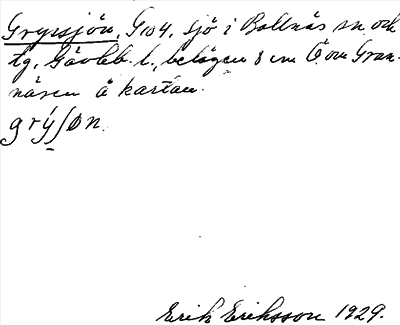 Gryssjön, G104, sjö i Bollnäs sn och
tg, Gävleb. l., belägen 8 cm Ö om Gran-
näsen å kartan.
grýʃøn.
Erik Eriksson 1929.